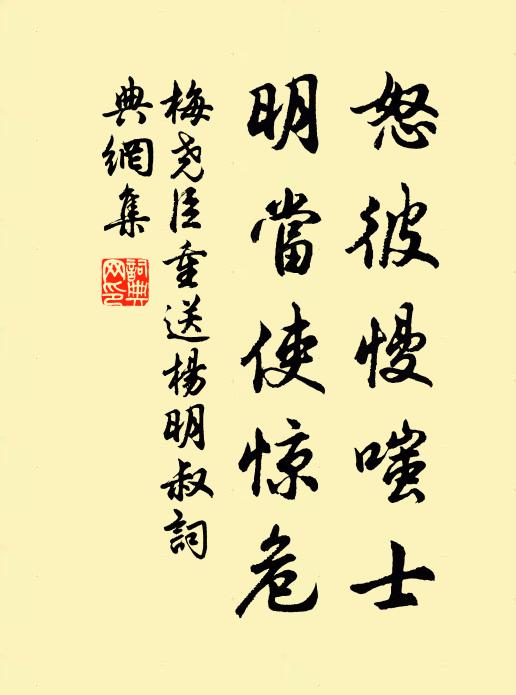 怒彼慢嗤士
明當使惊危
梅尧臣重送楊明叔詞
典網集
詞典网印